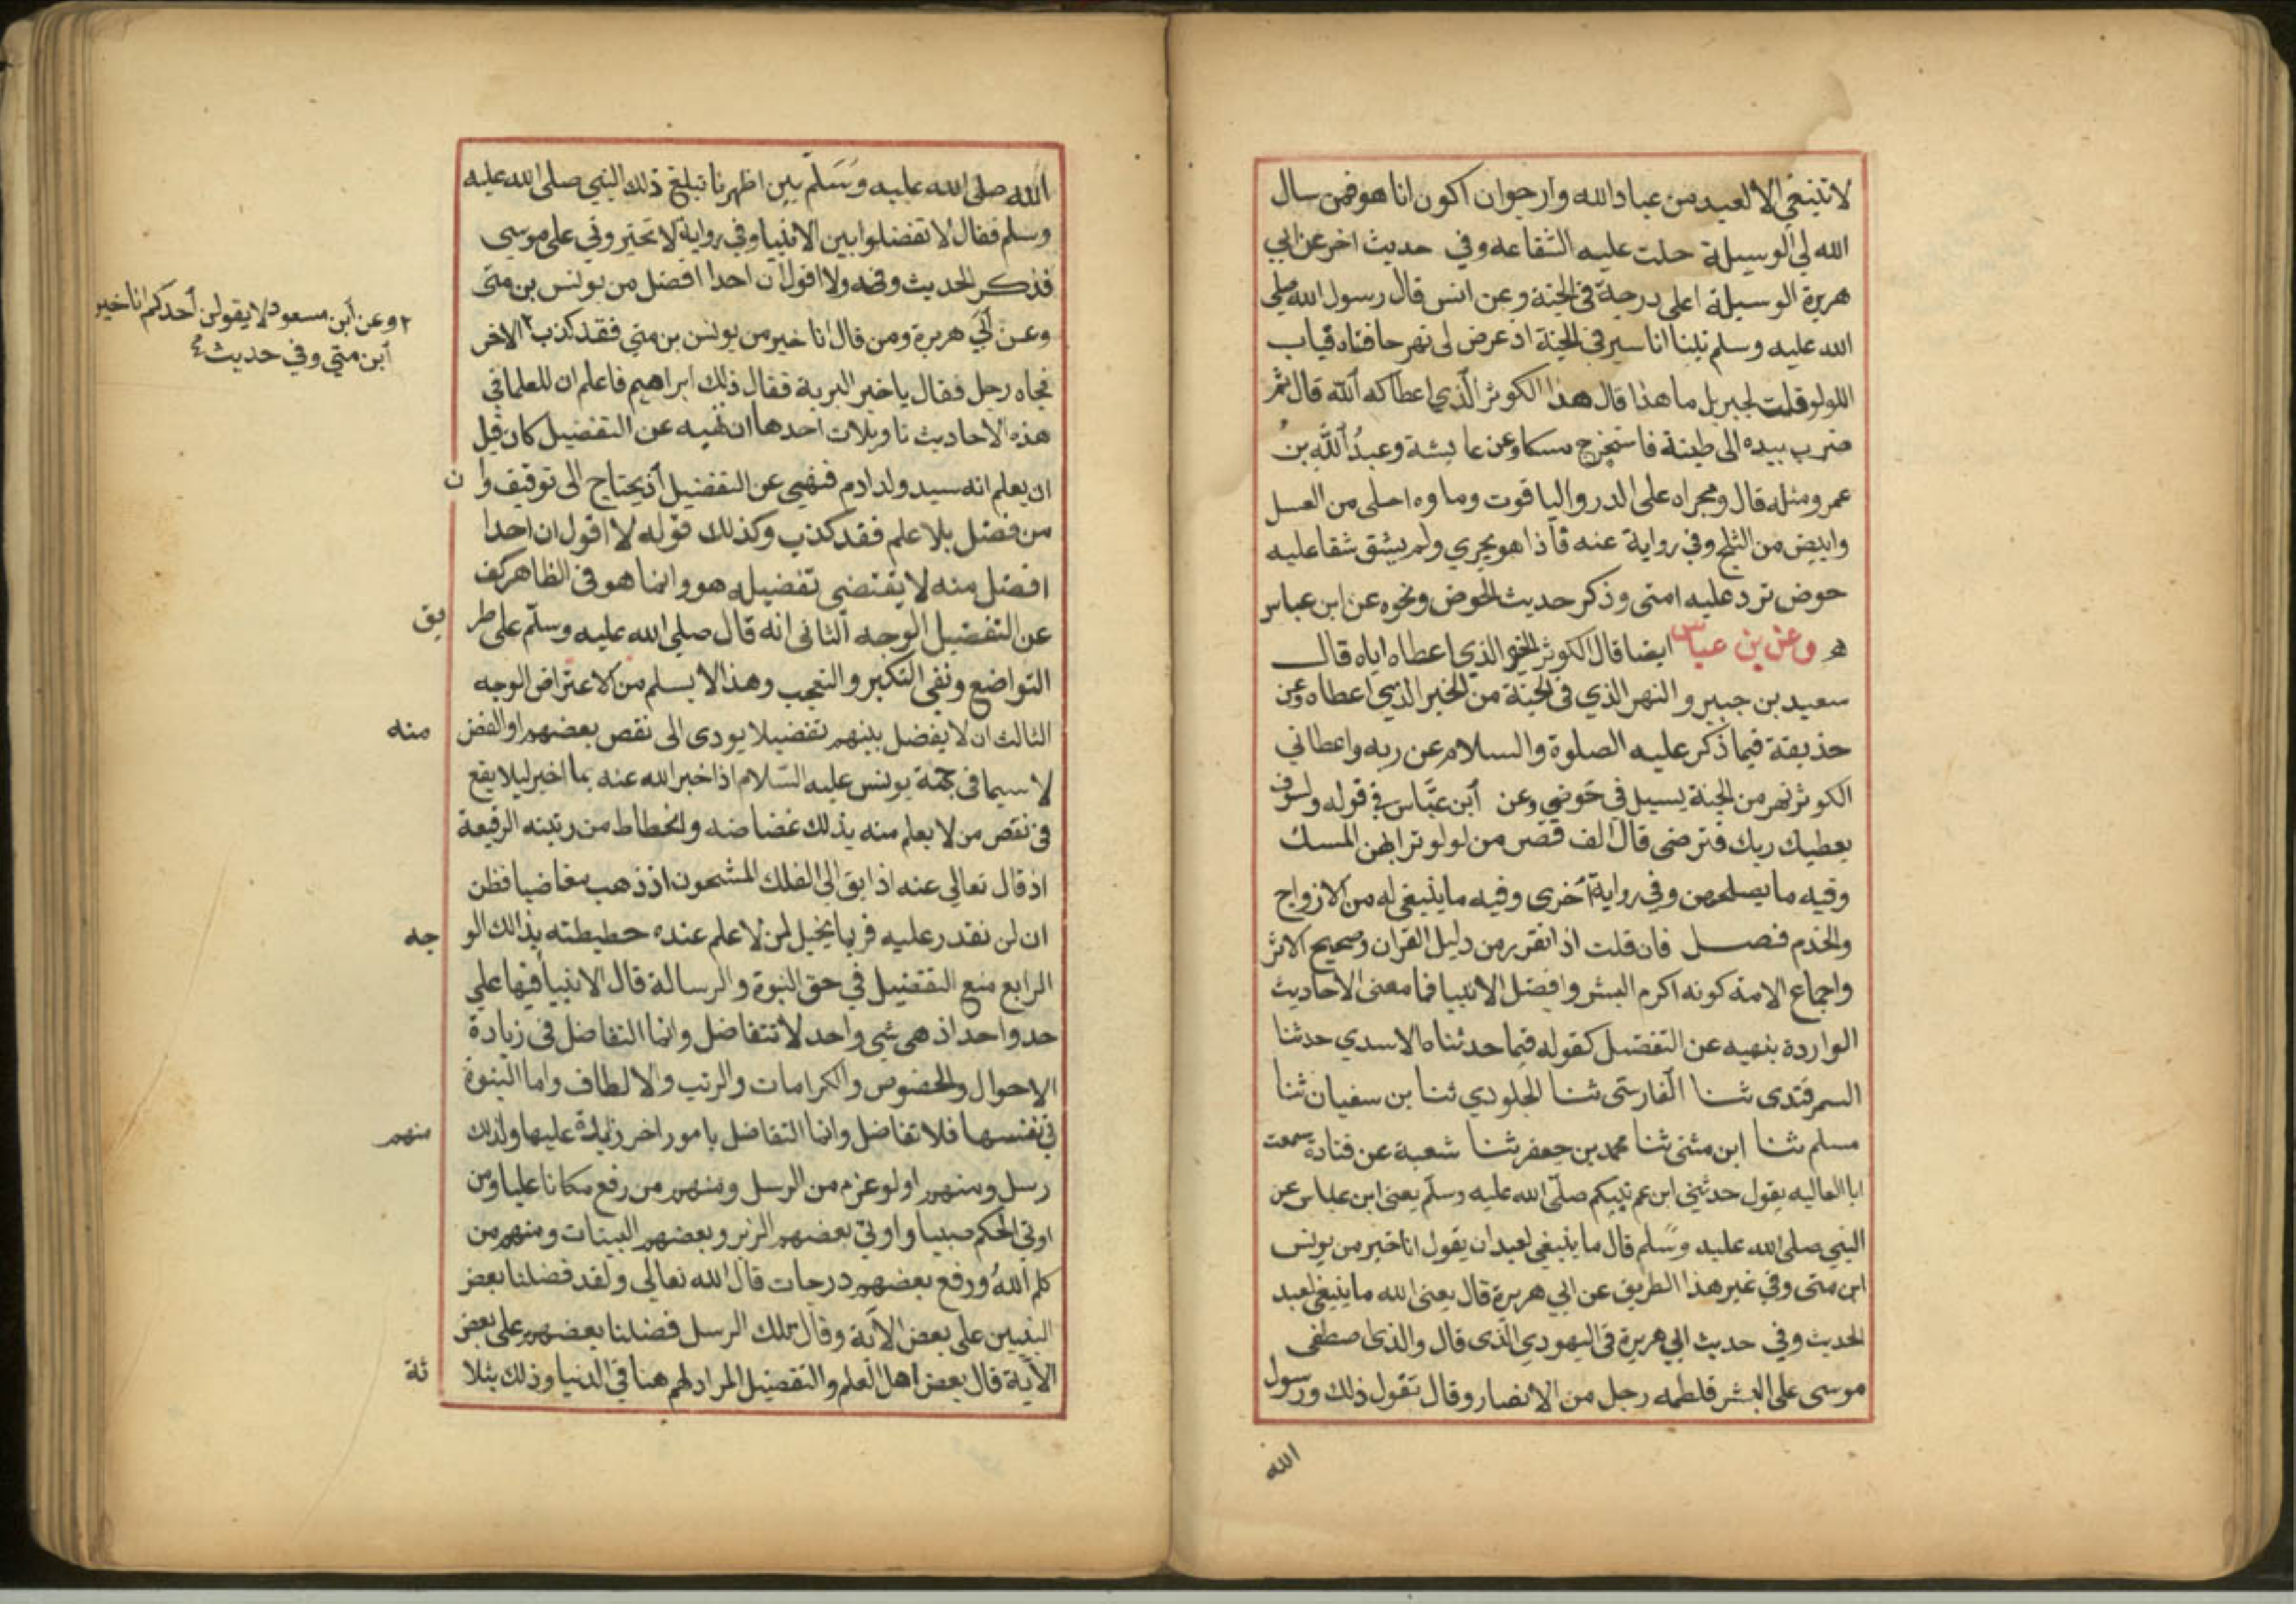 لا تنبغي الا لعبد من عباد الله وارجوا ان اكون انا هو فمن سال
الله لي الوسيلة حلت عليه الشفاعه وفي حديث اخر عن ابي
هريرة الوسيلة اعلى درجة في الجنة وعن انس قال رسول الله صلى
الله عليه وسلم بينا انا اسير في الجنة اذ عرض لى نهر حافتاه قباب
اللولو قلت لجبريل ما هذا قال هذا الكوثر الذي اعطاكه الله قال ثم
ضرب بيده الى طينة فاستخرج مسكا وعن عايشة وعبد الله بن
عمرو مثله قال ومجراه على الدر والياقوت وماوه احلى من العسل
وابيض من الثلج وفي رواية عنه فاذا هو يجري ولم يشق شقا عليه
حوض ترد عليه امتى وذكر حديث الحوض ونحوه عن ابن عباس
وعن بن عباس ايضا قال الكوثر الخير الذي اعطاه اياه قال
سعيد بن جبير والنهر الذي في الجنة من الخير الذي اعطاه وعن
حذيفة فيما ذكر عليه الصلوة والسلام عن ربه واعطاني
الكوثر نهر من الجنة يسيل في حوضي وعن ابن عباس في قوله ولسوف
يعطيك ربك فترضى قال الف قصر من لولو ترابهن المسك
وفيه ما يصلحهن وفي رواية اخرى وفيه ما ينبغي له من الازواج
والخدم فصل فان قلت اذا تقرر من دليل القران وصحيح الاثر
واجماع الامة كونه اكرم البشر وافضل الانبيا فما معنى الاحاديث
الواردة بنهيه عن التفضيل كقوله فيما حدثناه الاسدي حدثنا
السمرقندى ثنا الفارسى ثنا الجلودي ثنا بن سفيان ثنا
مسلم ثنا ابن مثنى ثنا محمد بن جعفر ثنا شعبة عن قتادة سمعت
ابا العاليه يقول حدثني ابن عم نبيكم صلى الله عليه وسلم يعنى ابن عباس عن
النبي صلى الله عليه وسلم قال ما ينبغي لعبد ان يقول انا خير من يونس
ابن متى وفي غير هذا الطريق عن ابي هريرة قال يعنى الله ما ينبغي لعبد
الحديث وفي حديث ابي هريرة في اليهودي الذى قال والذى اصطفى
موسى على البشر فلطمه رجل من الانصار وقال تقول ذلك ورسول
الله
الله صلى الله عليه وسلم بين اظهرنا تبلغ ذلك النبي صلى الله عليه
وسلم فقال لا تفضلوا بين الانبيا وفي رواية لا تخيروني على موسى
فذكر الحديث وفيه ولا اقول ان احدا افضل من يونس بن متى
وعن ابي هريرة ومن قال انا خير من يونس بن متى فقد كذب ٢ الاخر
٢ وعن ابن مسعود لا يقولن احدكم انا خير
ابن متي وفي حديث
فجاه رجل فقال يا خير البرية فقال ذلك ابراهيم فاعلم ان للعلما في
هذه الاحاديث تاويلات احدها ان نهيه عن التفضيل كان قبل
ان يعلم انه سيد ولد ادم فنهى عن التفضيل اذ يحتاج الى توقيف وان
من فضل بلا علم فقد كذب وكذلك قوله لا اقول ان احدا
افضل منه لا يقتضى تفضيله هو وانما هو في الظاهر كف
عن التفضيل الوجه الثانى انه قال صلى الله عليه وسلم على طر يق
التواضع ونفى التكبر والتعجب وهذا لا يسلم من الاعتراض الوجه
الثالث ان لا يفضل بينهم تفضيلا يودى الى نقص بعضهم او الغض منه
لا سيما في جهة يونس عليه السلام اذ اخبر الله عنه بما اخبر ليلا يقع
في نفس من لا يعلم منه بذلك غضاضه وانحطاط من رتبته الرفيعة
اذ قال تعالى عنه اذ ابق الى الفلك المشحون اذ ذهب مغاضبا فظن
ان لن نقدر عليه فربما يخيل لمن لا علم عنده حطيطته بذالك الو جه
الرابع منع التفضيل في حق النبوة والرسالة قال الانبيا فيها على
حد واحد اذ هى شي واحد لا تتفاضل وانما التفاضل في زيادة
الاحوال والخصوص والكرامات والرتب والالطاف واما النبوة
في نفسها فلا تفاضل وانما التفاضل بامور اخر زايدة عليها ولذلك منهم
رسل ومنهم اولو عزم من الرسل ومنهم من رفع مكانا عليا ومن
اوتى الحكم صبيا واوتي بعضهم الزبر وبعضهم البينات ومنهم من
كلم الله ورفع بعضهم درجات قال الله تعالى ولقد فضلنا بعض
النبيين على بعض الآية وقال تلك الرسل فضلنا بعضهم على بعض
الآية قال بعض اهل العلم والتفضيل المراد لهم هنا في الدنيا وذلك بثلا ثة